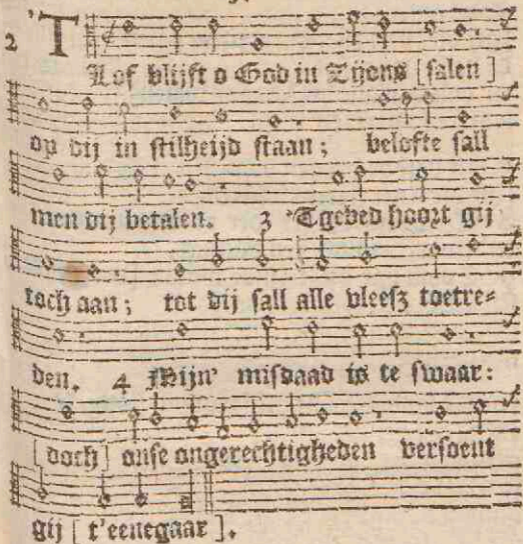 2 'T
Lof blijft o God in Zijons [salen]
op dij in stilheijd staan; belofte sall
men dij betalen. 3 'Tgebed hoort gij
toch aan; tot dij sall alle vleesz toetre-
den. 4 Mijn' misdaad is te swaar:
[doch] onse ongerechtigheden versoent
gij [t'eenegaar].